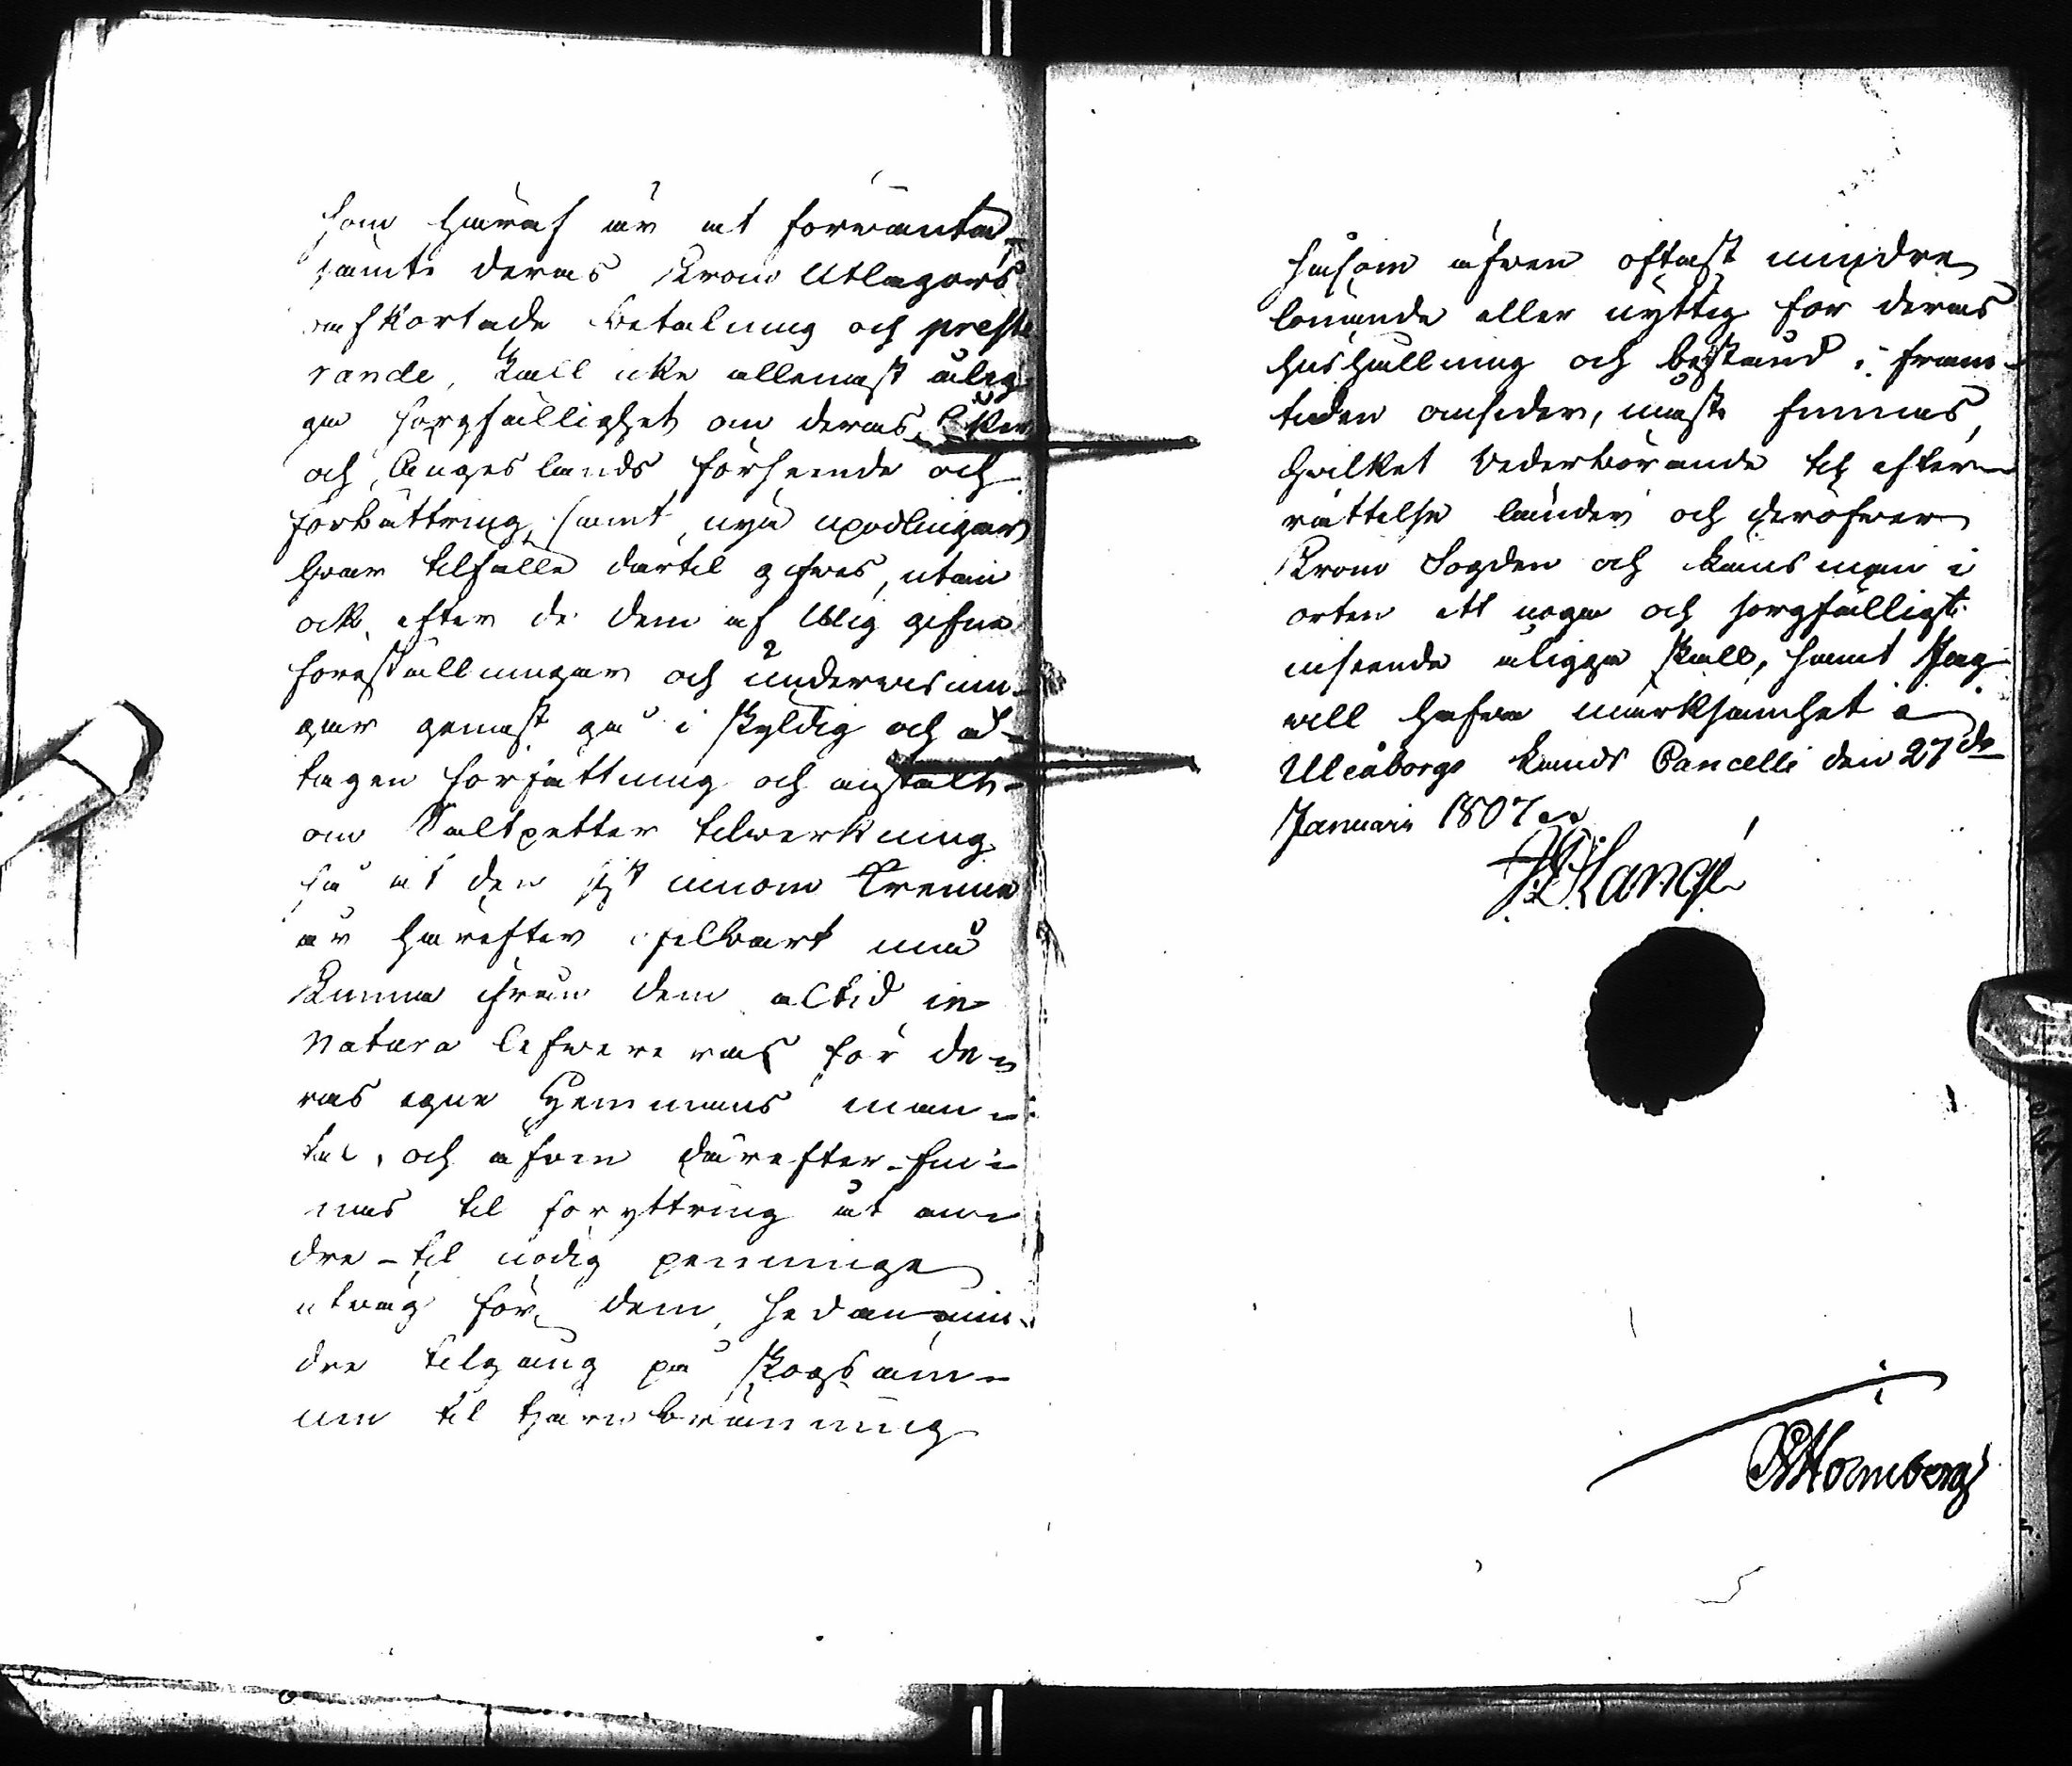 som häraf är at förvänta,
jämte deras Krono Utlagors
oafkortade betalning och preste
rande, skall icke allenast ålig-
ga sorgfällighet om deras Åker
och Ängeslands förseende och
förbättring, samt nya upodlingar
hvar tilfälle därtil gifves, utan
ock, efter de dem af Mig gifne
föreställningar och undervisnin-
gar genast gå i skyldig och a-
lagen författning och anstalt
om Saltpetter tilwerkning
så at den inom trenne
år härefter felbart må
kunna ifrån dem altid in
Natura lefwereras för de-
ras egne Hemmans man-
tal, och äfven därefter fin-
nas til foryttring åt an-
dre til nödig penninge
utväg för dem, sedan min-
dre tilgång på skogsäm-
nen til tjärubränning
såsom äfven oftast mindre
lönande eller nyttig för deras
hushållning och bestånd i fram-
tiden omsider, måste finnas,
hvilket Vederbörande til efter-
rättelse länder och häröfver
Krono Fogden och Länsman i
orten ett noga och sorgfälligt
inseende åligga skall, samt Jag
vill hafva märksamhet å
Uleåborgs Lands Cancelli den 27de
Januarii 1807
Langé
Hornberg